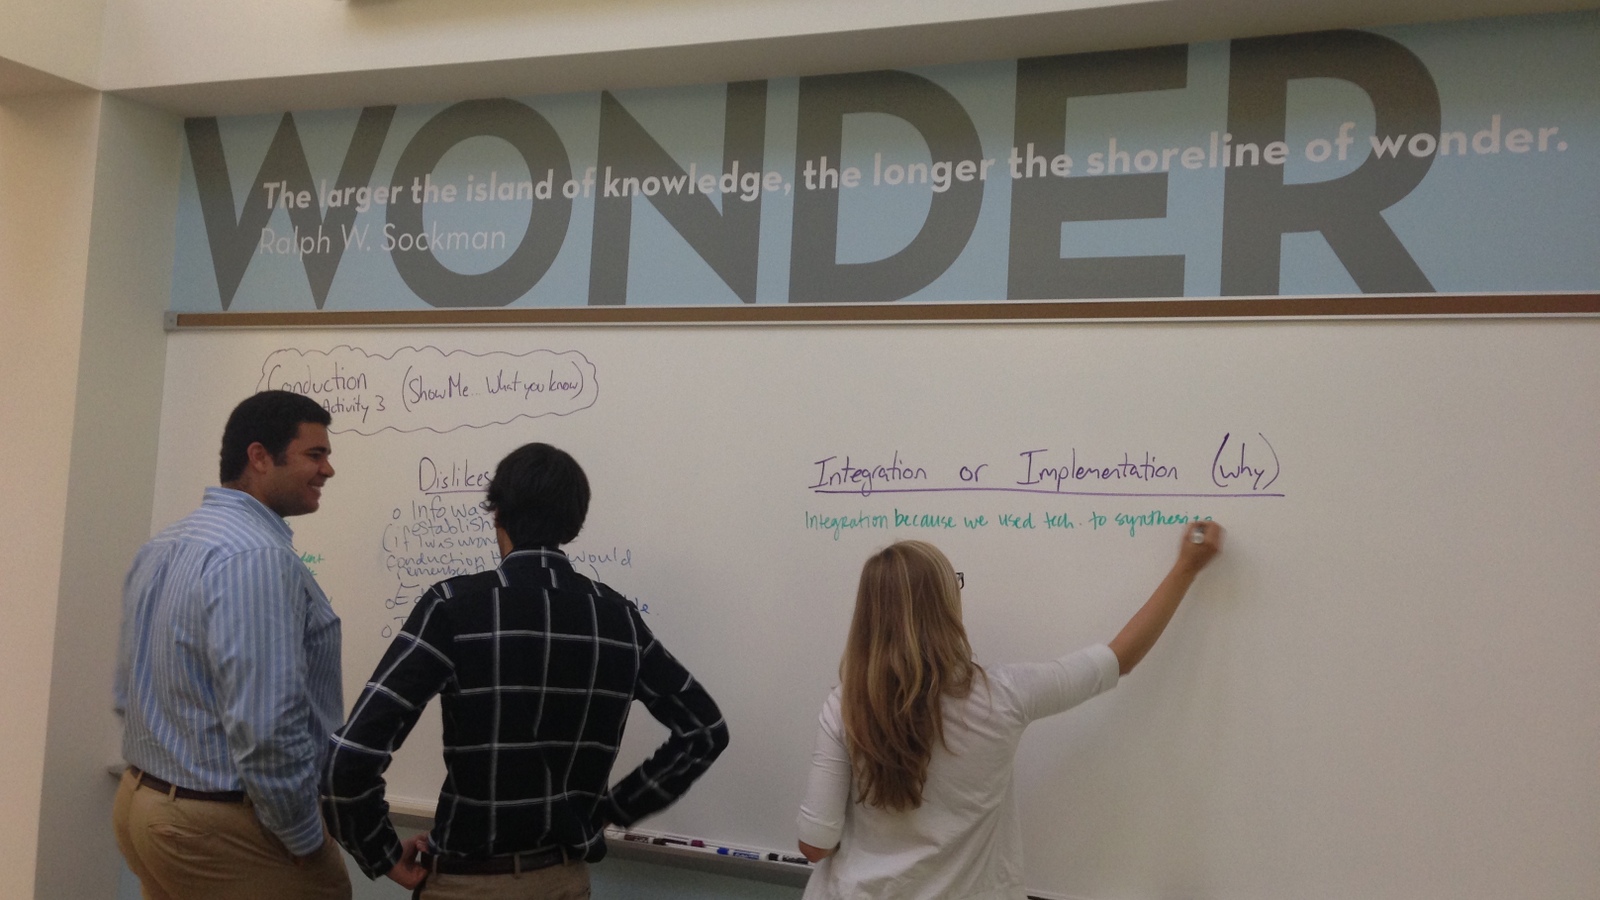 WONDER
The larger the island of knowledge, the longer the shoreline of wonder.
Ralph W. Sockman
Conduction (Show Me... What you know)
Activity 3
Dislikes
o Info was
(if I was
conduction would
remember
Integration or Implementation (why)
Integration because we used tech. to synthesize